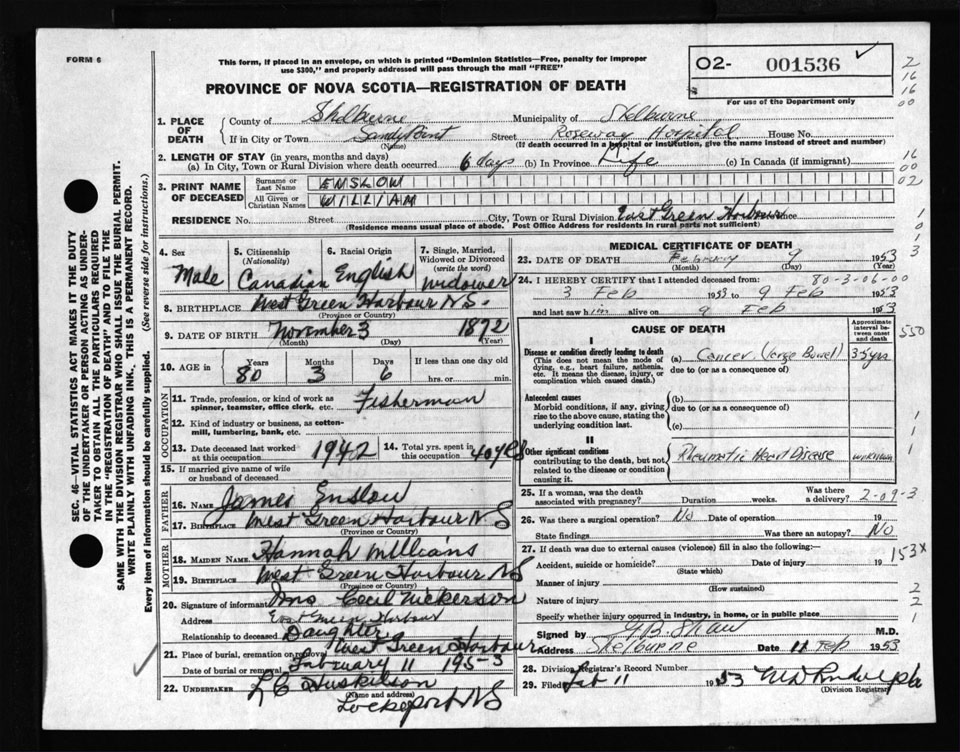 FORM 6
This form, if placed in an envelope, on which is printed "Dominion Statistics—Free, penalty for improper
use $300," and properly addressed will pass through the mail "FREE"
O2- 001536
For use of the Department only
PROVINCE OF NOVA SCOTIA—REGISTRATION OF DEATH
1. PLACE OF DEATH
County of Shelburne Municipality of Shelburne
If in City or Town Sandy Point Street Roseway Hospital House No.
(Name) (If death occurred in a hospital or institution, give the name instead of street and number)
2. LENGTH OF STAY (in years, months and days)
(a) In City, Town or Rural Division where death occurred 6 days (b) In Province Life (c) In Canada (if immigrant)
3. PRINT NAME OF DECEASED
Surname or Last Name ENSLOW
All Given or Christian Names WILLIAM
RESIDENCE No. Street City, Town or Rural Division East Green Harbour
(Residence means usual place of abode. Post Office Address for residents in rural parts not sufficient)
4. Sex Male
5. Citizenship (Nationality) Canadian
6. Racial Origin English
7. Single, Married, Widowed or Divorced (write the word) Widower
8. BIRTHPLACE West Green Harbour N.S.
(Province or Country)
9. DATE OF BIRTH November 3 1872
(Month) (Day) (Year)
10. AGE in Years 80 Months 3 Days 6 If less than one day old
hrs. or min.
OCCUPATION
11. Trade, profession, or kind of work as spinner, teamster, office clerk, etc. Fisherman
12. Kind of industry or business, as cotton-mill, lumbering, bank, etc.
13. Date deceased last worked at this occupation 1942
14. Total yrs. spent in this occupation 40 yrs
15. If married give name of wife or husband of deceased
FATHER
16. NAME James Enslow
17. BIRTHPLACE West Green Harbour NS
(Province or Country)
MOTHER
18. MAIDEN NAME Hannah Millians
19. BIRTHPLACE West Green Harbour NS
(Province or Country)
20. Signature of informant Mrs Cecil Nickerson
Address East Green Harbour
Relationship to deceased Daughter
21. Place of burial, cremation or removal West Green Harbour
Date of burial or removal February 11 1953
22. UNDERTAKER L C Huskilson
(Name and address)
Lockeport NS
MEDICAL CERTIFICATE OF DEATH
23. DATE OF DEATH February 9 1953
(Month) (Day) (Year)
24. I HEREBY CERTIFY that I attended deceased from: 80-3-06-00
3 Feb 1953 to 9 Feb 1953
and last saw him alive on 9 Feb 1953
CAUSE OF DEATH
Approximate interval between onset and death
I
Disease or condition directly leading to death
(This does not mean the mode of dying, e.g., heart failure, asthenia, etc. It means the disease, injury, or complication which caused death.)
(a) Cancer (Large Bowel) 3-5 yrs
due to (or as a consequence of)
Antecedent causes
Morbid conditions, if any, giving rise to the above cause, stating the underlying condition last.
(b)
due to (or as a consequence of)
(c)
II
Other significant conditions
contributing to the death, but not related to the disease or condition causing it.
Rheumatic Heart Disease unknown
25. If a woman, was the death associated with pregnancy? Duration weeks. Was there a delivery? 2-09-3
26. Was there a surgical operation? No Date of operation 19
State findings Was there an autopsy? No
27. If death was due to external causes (violence) fill in also the following:—
Accident, suicide or homicide? Date of injury 19 153X
(State which)
Manner of injury
(How sustained)
Nature of injury
Specify whether injury occurred in industry, in home, or in public place
Signed by G B Shaw M.D.
Address Shelburne Date 11 Feb 1953
28. Division Registrar's Record Number
29. Filed Feb 11 1953
(Division Registrar)
SEC. 46 — VITAL STATISTICS ACT MAKES IT THE DUTY
OF THE UNDERTAKER OR PERSON ACTING AS UNDER-
TAKER TO OBTAIN ALL THE PARTICULARS REQUIRED
IN THE "REGISTRATION OF DEATH" AND TO FILE THE
SAME WITH THE DIVISION REGISTRAR WHO SHALL ISSUE THE BURIAL PERMIT.
WRITE PLAINLY WITH UNFADING INK. THIS IS A PERMANENT RECORD.
Every item of information should be carefully supplied. (See reverse side for instructions.)
2
16
16
00
16
00
02
1
0
1
3
550
1
1
1
2
2
1